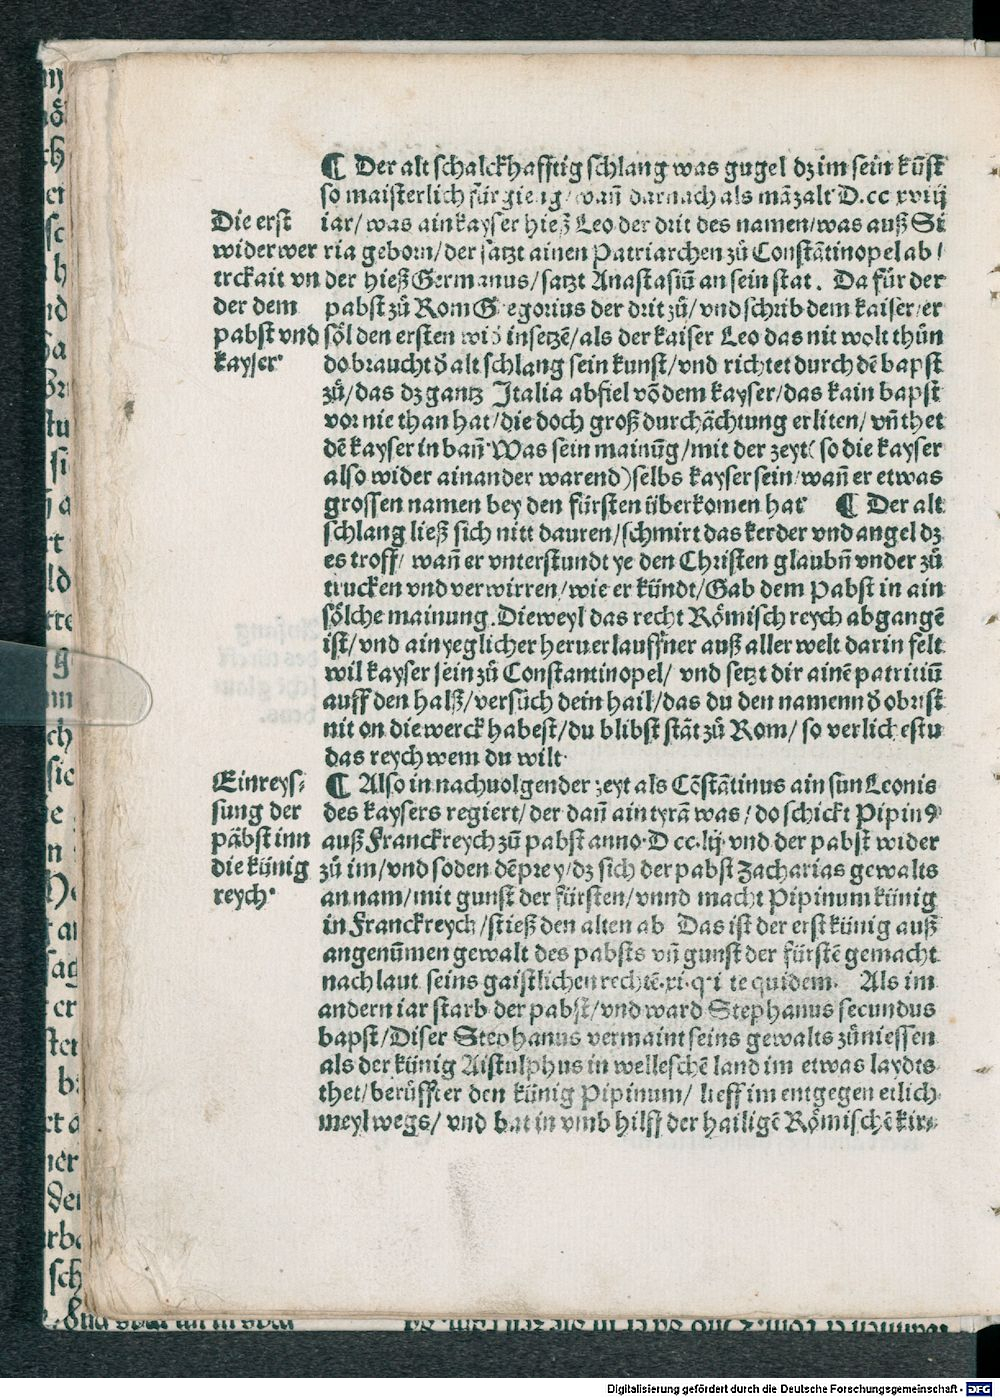 ¶ Der alt schalckhafftig schlang was gugel dz im sein kūst
so maisterlich für gieng/ wañ darnach als mā zalt D.cc xviij
iar/ was ain kayser hieß Leo der drit des namen/ was auß Si
ria geborn/ der satzt ainen Patriarchen zů Constātinopel ab/
der hieß Germanus/ satzt Anastasiū an sein stat. Da für der
pabst zů Rom Gregorius der drit zů/ vnd schrib dem kaiser/ er
söl den ersten wid insetzē/ als der kaiser Leo das nit wolt thůn
do braucht ð alt schlang sein kunst/ vnd richtet durch dē bapst
zů/ das dz gantz Italia abfiel vō dem kayser/ das kain bapst
vor nie than hat/ die doch groß durchächtung erliten/ vñ thet
dē kayser in bañ Was sein mainūg/ mit der zeyt( so die kayser
also wider ainander warend) selbs kayser sein/ wañ er etwas
grossen namen bey den fürsten überkomen hat ¶ Der alt
schlang ließ sich nitt dauren/ schmirt das kerder vnd angel dz
es troff/ wañ er vnterstundt ye den Christen glaubñ vnder zů
trucken vnd verwirren/ wie er kündt/ Gab dem Pabst in ain
sölche mainung. Dieweyl das recht Römisch reych abgangē
ist/ vnd ain yeglicher heruerlauffner auß aller welt darin felt
wil kayser sein zů Constantinopel/ vnd setzt dir ainē patritiū
auff den halß/ versůch dein hail/ das du den namenn ð obrist
nit on die werck habest/ du blibst stāt zů Rom/ so verlichestu
das reych wem du wilt
¶ Also in nachuolgender zeyt als Cōstātinus ain sun Leonis
des kaysers regiert/ der dañ ain tyrā was/ do schickt Pipin9
auß Franckreych zů pabst anno D cc.lij vnd der pabst wider
zů im/ vnd soden dē prey/ dz sich der pabst Zacharias gewalts
an nam/ mit gunst der fürsten/ vnnd macht Pipinum künig
in Franckreych/ stieß den alten ab Das ist der erst künig auß
angenūmen gewalt des pabsts vñ gunst der fürstē gemacht
nach laut seins gaistlichen rechtē. xi. q i te quidem. Als im
andern iar starb der pabst/ vnd ward Stephanus secundus
bapst/ Diser Stephanus vermaint seins gewalts zů niessen
als der künig Aistulphus in welleschē land im etwas laydts
thet/ berůfft er den künig Pipinum/ lieff im entgegen etlich
meyl wegs/ vnd bat in vmb hilff der hailigē Römischē kir-
Die erst
widerwer
trckait vn
der dem
pabst vnd
kayser
Einreys-
sung der
päbst inn
die künig
reych
Digitalisierung gefördert durch die Deutsche Forschungsgemeinschaft - DFG